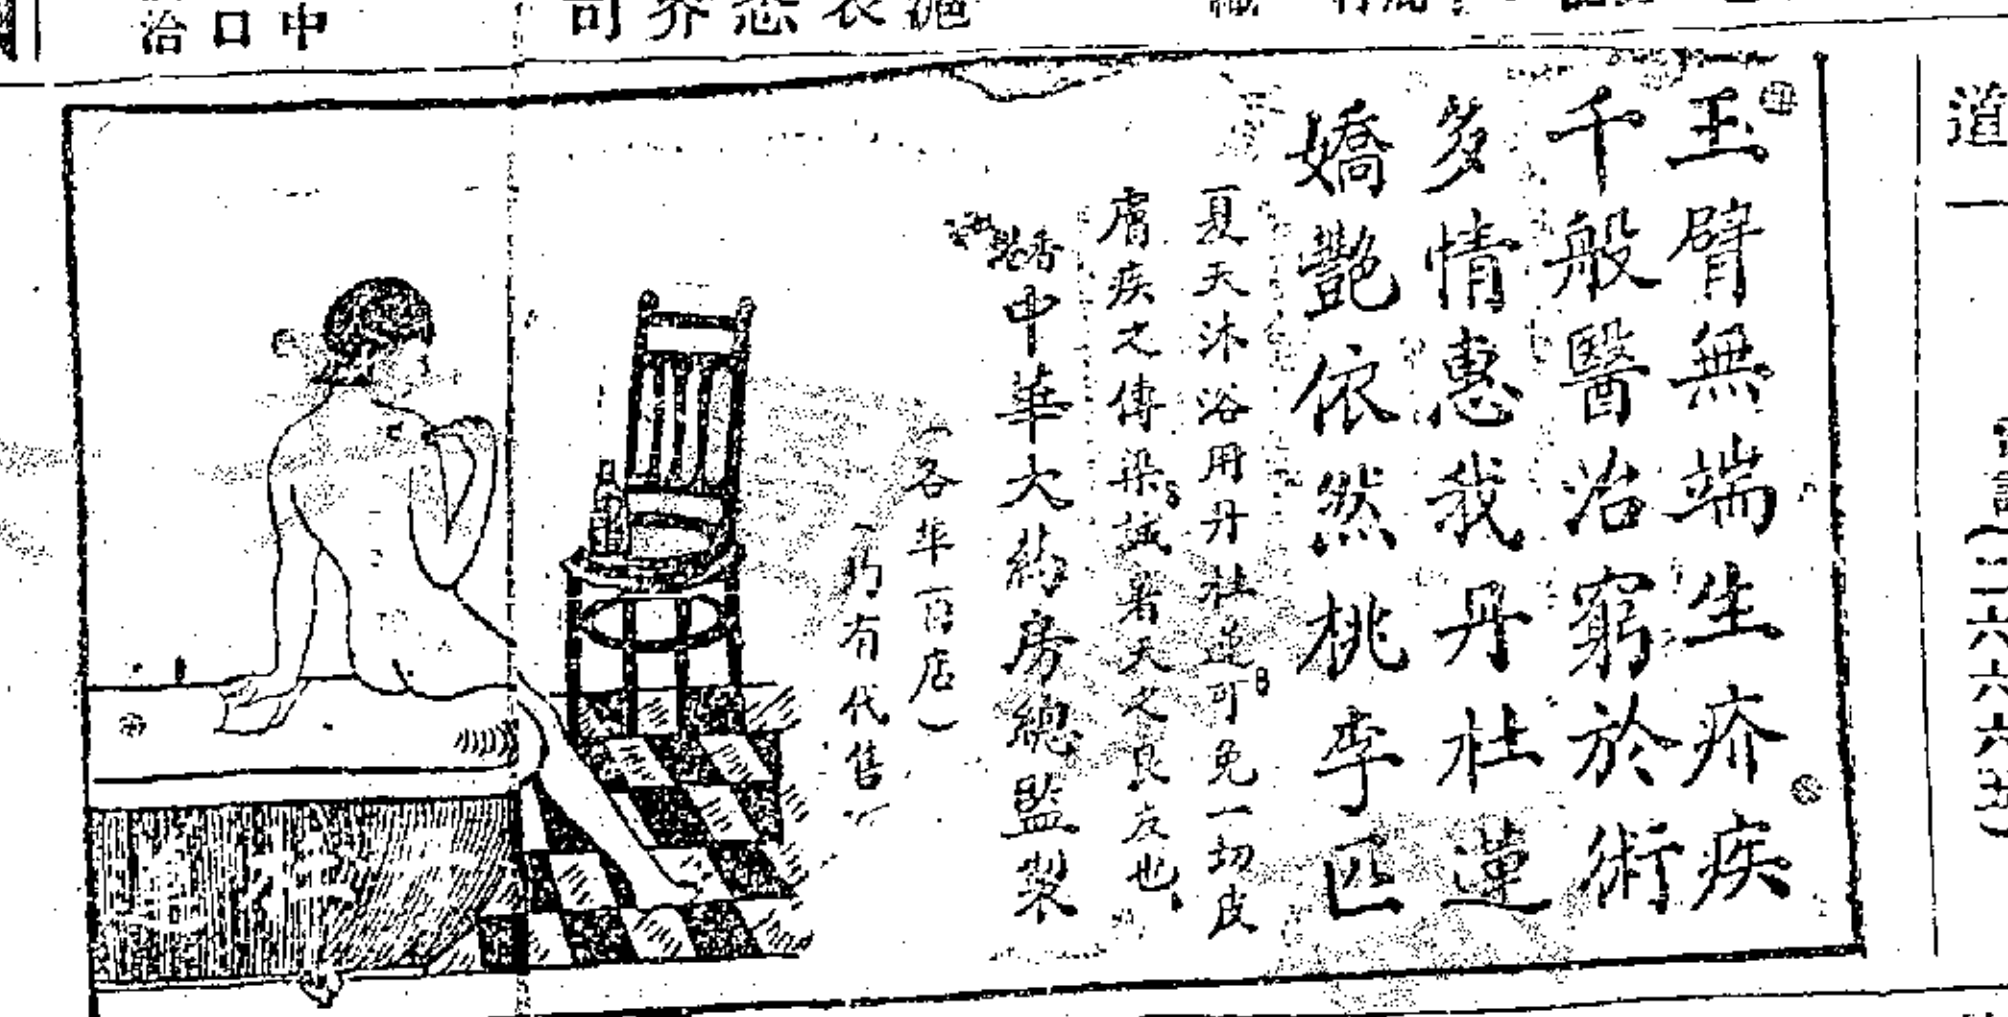 玉臂無端生疥疾
千般醫治窮於術
多情惠我丹杜蓮
嬌艷依然桃李匹
夏天沐浴用丹杜蓮可免一切皮
膚疾之傳染誠暑天之良友也
香港中華大葯房總監製
(各華百店)
均有代售
道
(二六六六
中
口
治